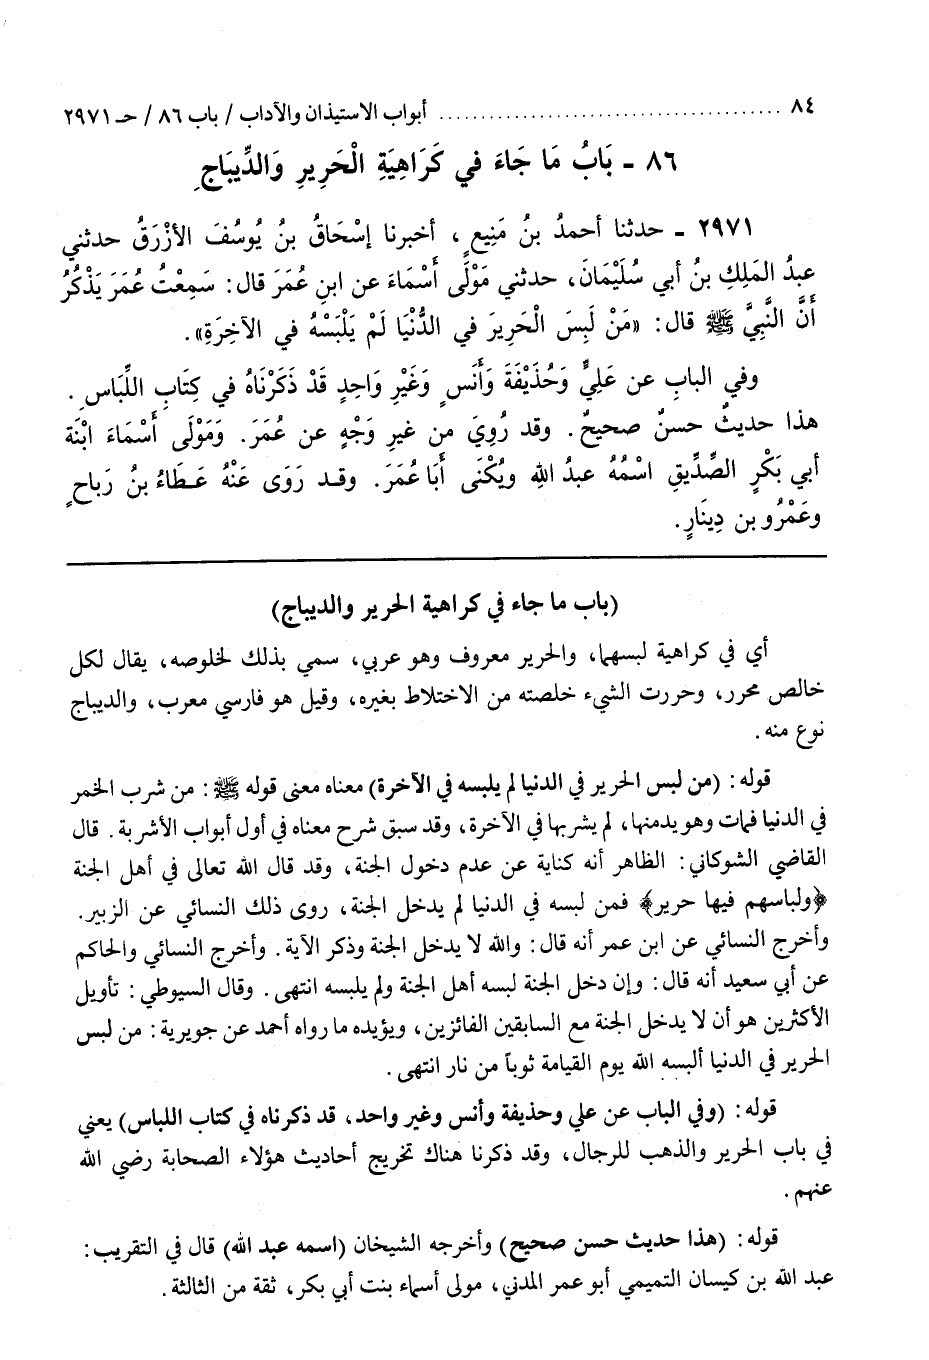 ٨٤ ........................................ أبواب الاستيذان والآداب / باب ٨٦ / حـ ٢٩٧١
٨٦ ـ بَابُ مَا جَاءَ في كَرَاهِيَةِ الْحَرِيرِ وَالدِّيبَاجِ
٢٩٧١ ـ حدثنا أحمدُ بنُ مَنِيعٍ، أخبرنا إسْحَاقُ بنُ يُوسُفَ الأزْرَقُ حدثني
عبدُ المَلِكِ بنُ أبي سُلَيْمَانَ، حدثني مَوْلَى أَسْمَاءَ عن ابنِ عُمَرَ قال: سَمِعْتُ عُمَرَ يَذْكُرُ
أَنَّ النَّبِيَّ ﷺ قال: «مَنْ لَبِسَ الْحَرِيرَ في الدُّنْيَا لَمْ يَلْبَسْهُ في الآخِرَةِ».
وفي البابِ عن عَلِيٍّ وَحُذَيْفَةَ وَأَنَسٍ وَغَيْرِ وَاحِدٍ قَدْ ذَكَرْنَاهُ في كِتَابِ اللِّبَاسِ.
هذا حديثٌ حسنٌ صحيحٌ. وقد رُوِيَ من غيرِ وَجْهٍ عن عُمَرَ. وَمَوْلَى أَسْمَاءَ ابْنَة
أبي بَكْرٍ الصِّدِّيقِ اسْمُهُ عبدُ اللهِ ويُكْنَى أَبَا عُمَرَ. وقـد رَوَى عَنْهُ عَـطَاءُ بنُ رَبَاحٍ
وعَمْرُو بن دِينَارٍ.
(باب ما جاء في كراهية الحرير والديباج)
أي في كراهية لبسهما، والحرير معروف وهو عربي، سمي بذلك لخلوصه، يقال لكل
خالص محرر، وحررت الشيء خلصته من الاختلاط بغيره، وقيل هو فارسي معرب، والديباج
نوع منه.
قوله: (من لبس الحرير في الدنيا لم يلبسه في الآخرة) معناه معنى قوله ﷺ: من شرب الخمر
في الدنيا فمات وهو يدمنها، لم يشربها في الآخرة، وقد سبق شرح معناه في أول أبواب الأشربة. قال
القاضي الشوكاني: الظاهر أنه كناية عن عدم دخول الجنة، وقد قال الله تعالى في أهل الجنة
﴿ولباسهم فيها حرير﴾ فمن لبسه في الدنيا لم يدخل الجنة، روى ذلك النسائي عن الزبير.
وأخرج النسائي عن ابن عمر أنه قال: والله لا يدخل الجنة وذكر الآية. وأخرج النسائي والحاكم
عن أبي سعيد أنه قال: وإن دخل الجنة لبسه أهل الجنة ولم يلبسه انتهى. وقال السيوطي: تأويل
الأكثرين هو أن لا يدخل الجنة مع السابقين الفائزين، ويؤيده ما رواه أحمد عن جويرية: من لبس
الحرير في الدنيا ألبسه الله يوم القيامة ثوباً من نار انتهى.
قوله: (وفي الباب عن علي وحذيفة وأنس وغير واحد، قد ذكرناه في كتاب اللباس) يعني
في باب الحرير والذهب للرجال، وقد ذكرنا هناك تخريج أحاديث هؤلاء الصحابة رضي الله
عنهم.
قوله: (هذا حديث حسن صحيح) وأخرجه الشيخان (اسمه عبد الله) قال في التقريب:
عبد الله بن كيسان التميمي أبو عمر المدني، مولى أسماء بنت أبي بكر، ثقة من الثالثة.